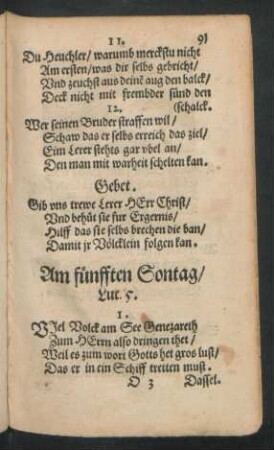 11. 91
Du Heuchler/ warumb merckstu nicht
Am ersten/ was dir selbs gebricht/
Vnd zeuchst aus deinē aug den balck/
Deck nicht mit frembder sünd den
12. (schalck.
Wer seinen Bruder straffen wil/
Schaw das er selbs erreich das ziel/
Eim Lerer stehts gar vbel an/
Den man mit warheit schelten kan.
Gebet.
Gib vns trewe Lerer HErr Christ/
Vnd behüt sie fur Ergernis/
Hilff das sie selbs brechen die ban/
Damit jr Völcklein folgen kan.
Am fünfften Sontag/
Luc. 5.
1.
VIel Volck am See Genezareth
Zum HErrn also dringen thet/
Weil es zum wort Gotts het gros lust/
Das er in ein Schiff tretten must.
O 3 Dassel.